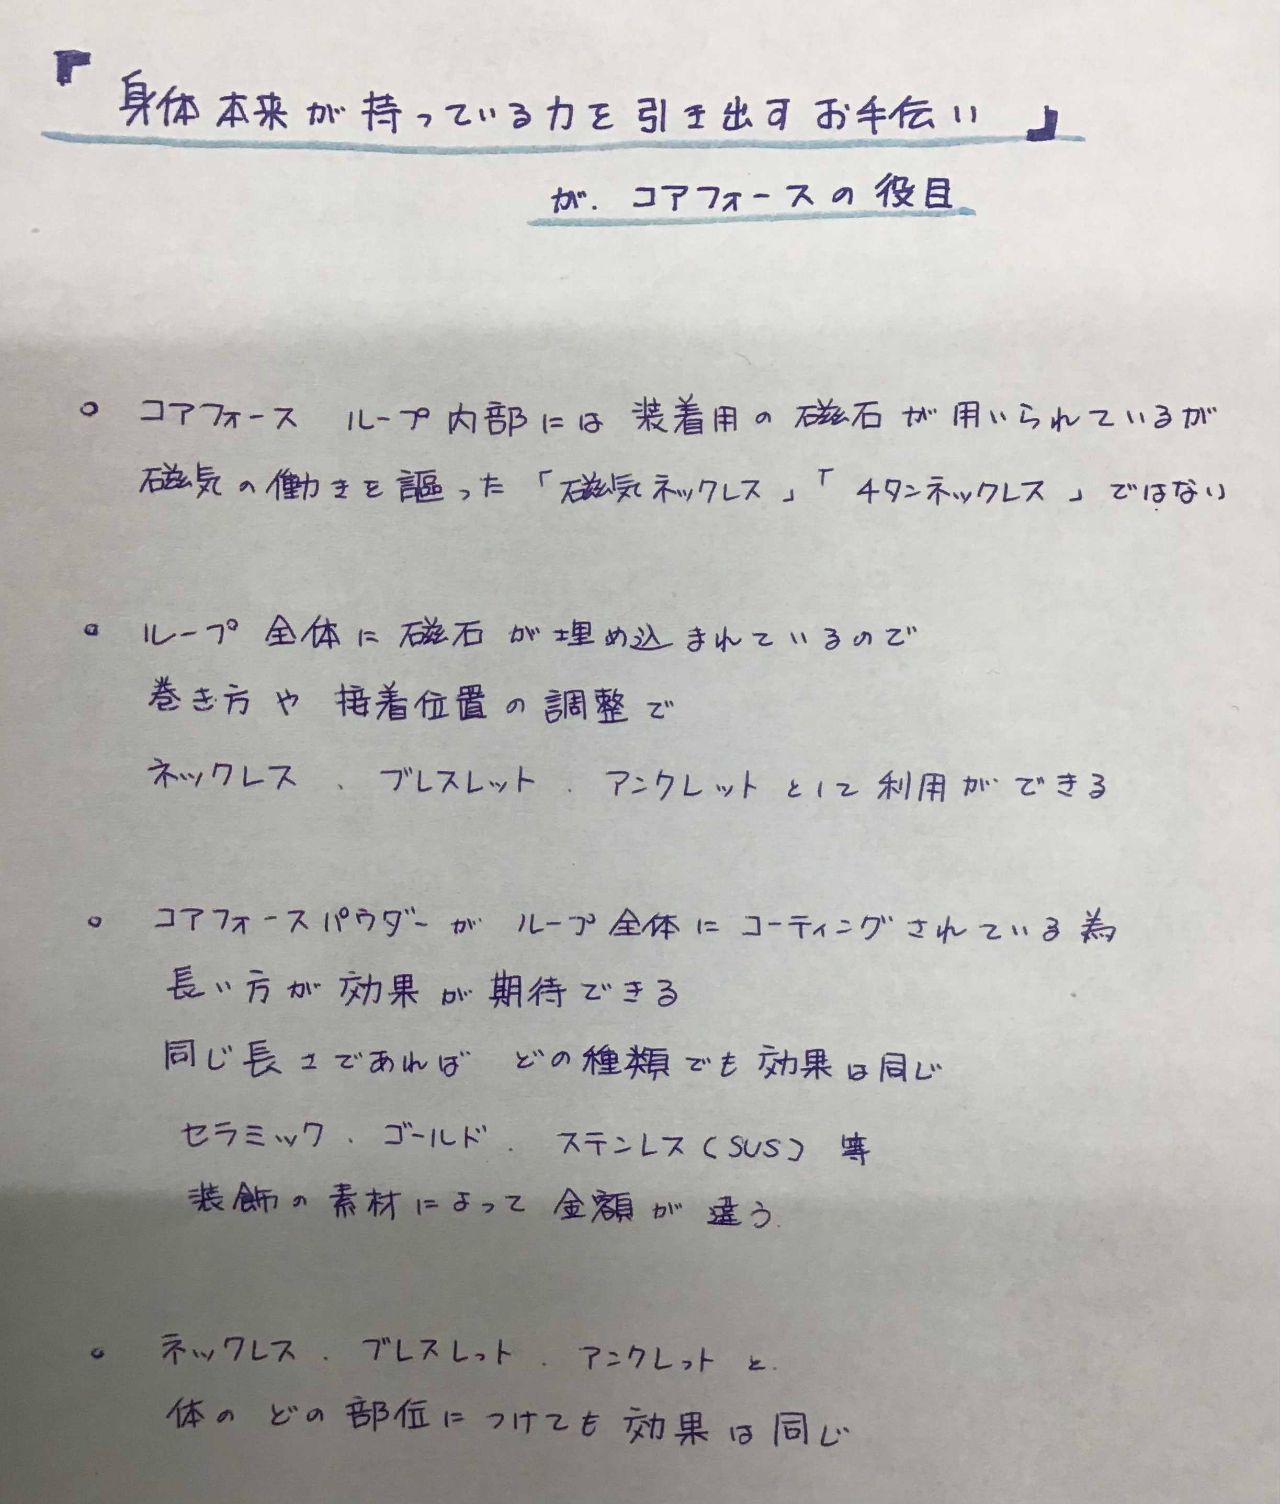 『身体本来が持っている力を引き出すお手伝い』
が、コアフォースの役目
○ コアフォース ループ内部には装着用の磁石が用いられているが
磁気の働きを謳った「磁気ネックレス」「チタンネックレス」ではない
○ ループ全体に磁石が埋め込まれているので
巻き方や接着位置の調整で
ネックレス、ブレスレット、アンクレットとして利用ができる
○ コアフォースパウダーがループ全体にコーティングされている為
長い方が効果が期待できる
同じ長さであればどの種類でも効果は同じ
セラミック、ゴールド、ステンレス(SUS)等
装飾の素材によって金額が違う
○ ネックレス、ブレスレット、アンクレットと、
体のどの部位につけても効果は同じ